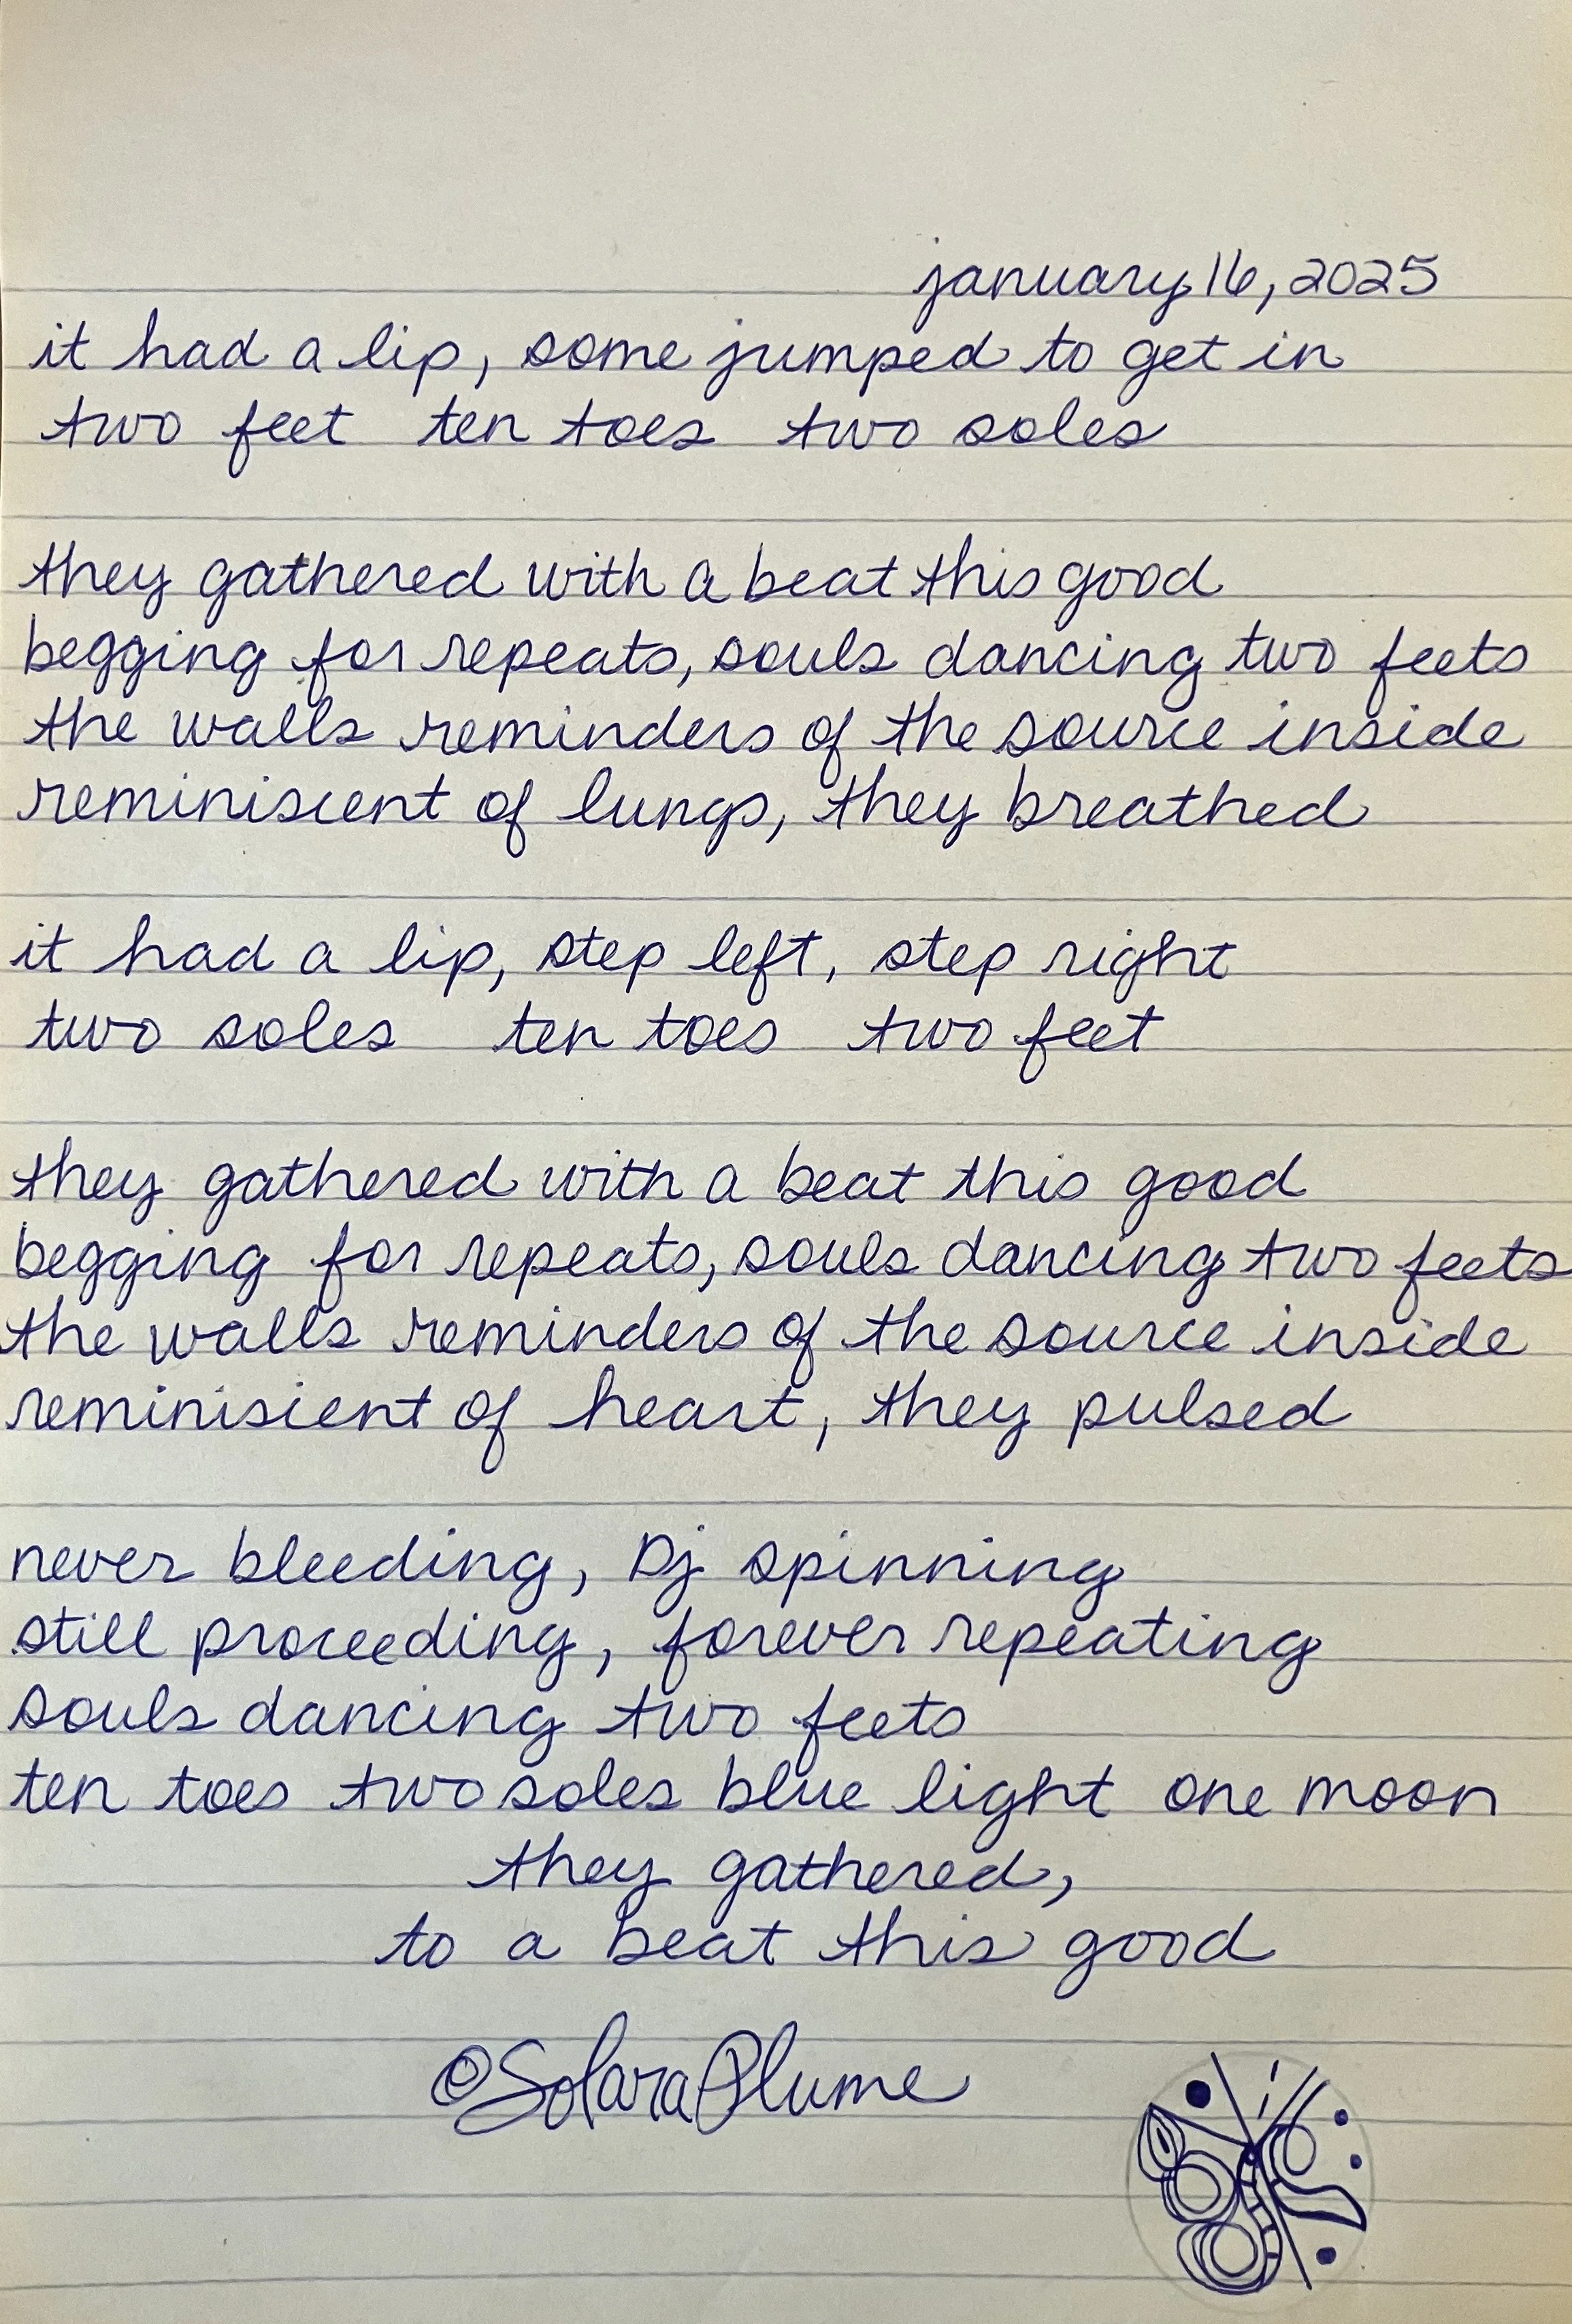 january 16, 2025
it had a lip, some jumped to get in
two feet ten toes two soles
they gathered with a beat this good
begging for repeats, souls dancing two feets
the walls reminders of the source inside
reminiscent of lungs, they breathed
it had a lip, step left, step right
two soles ten toes two feet
they gathered with a beat this good
begging for repeats, souls dancing two feets
the walls reminders of the source inside
reminisient of heart, they pulsed
never bleeding, Dj spinning
still proceeding, forever repeating
souls dancing two feets
ten toes two soles blue light one moon
they gathered,
to a beat this good
©SolaraPlume